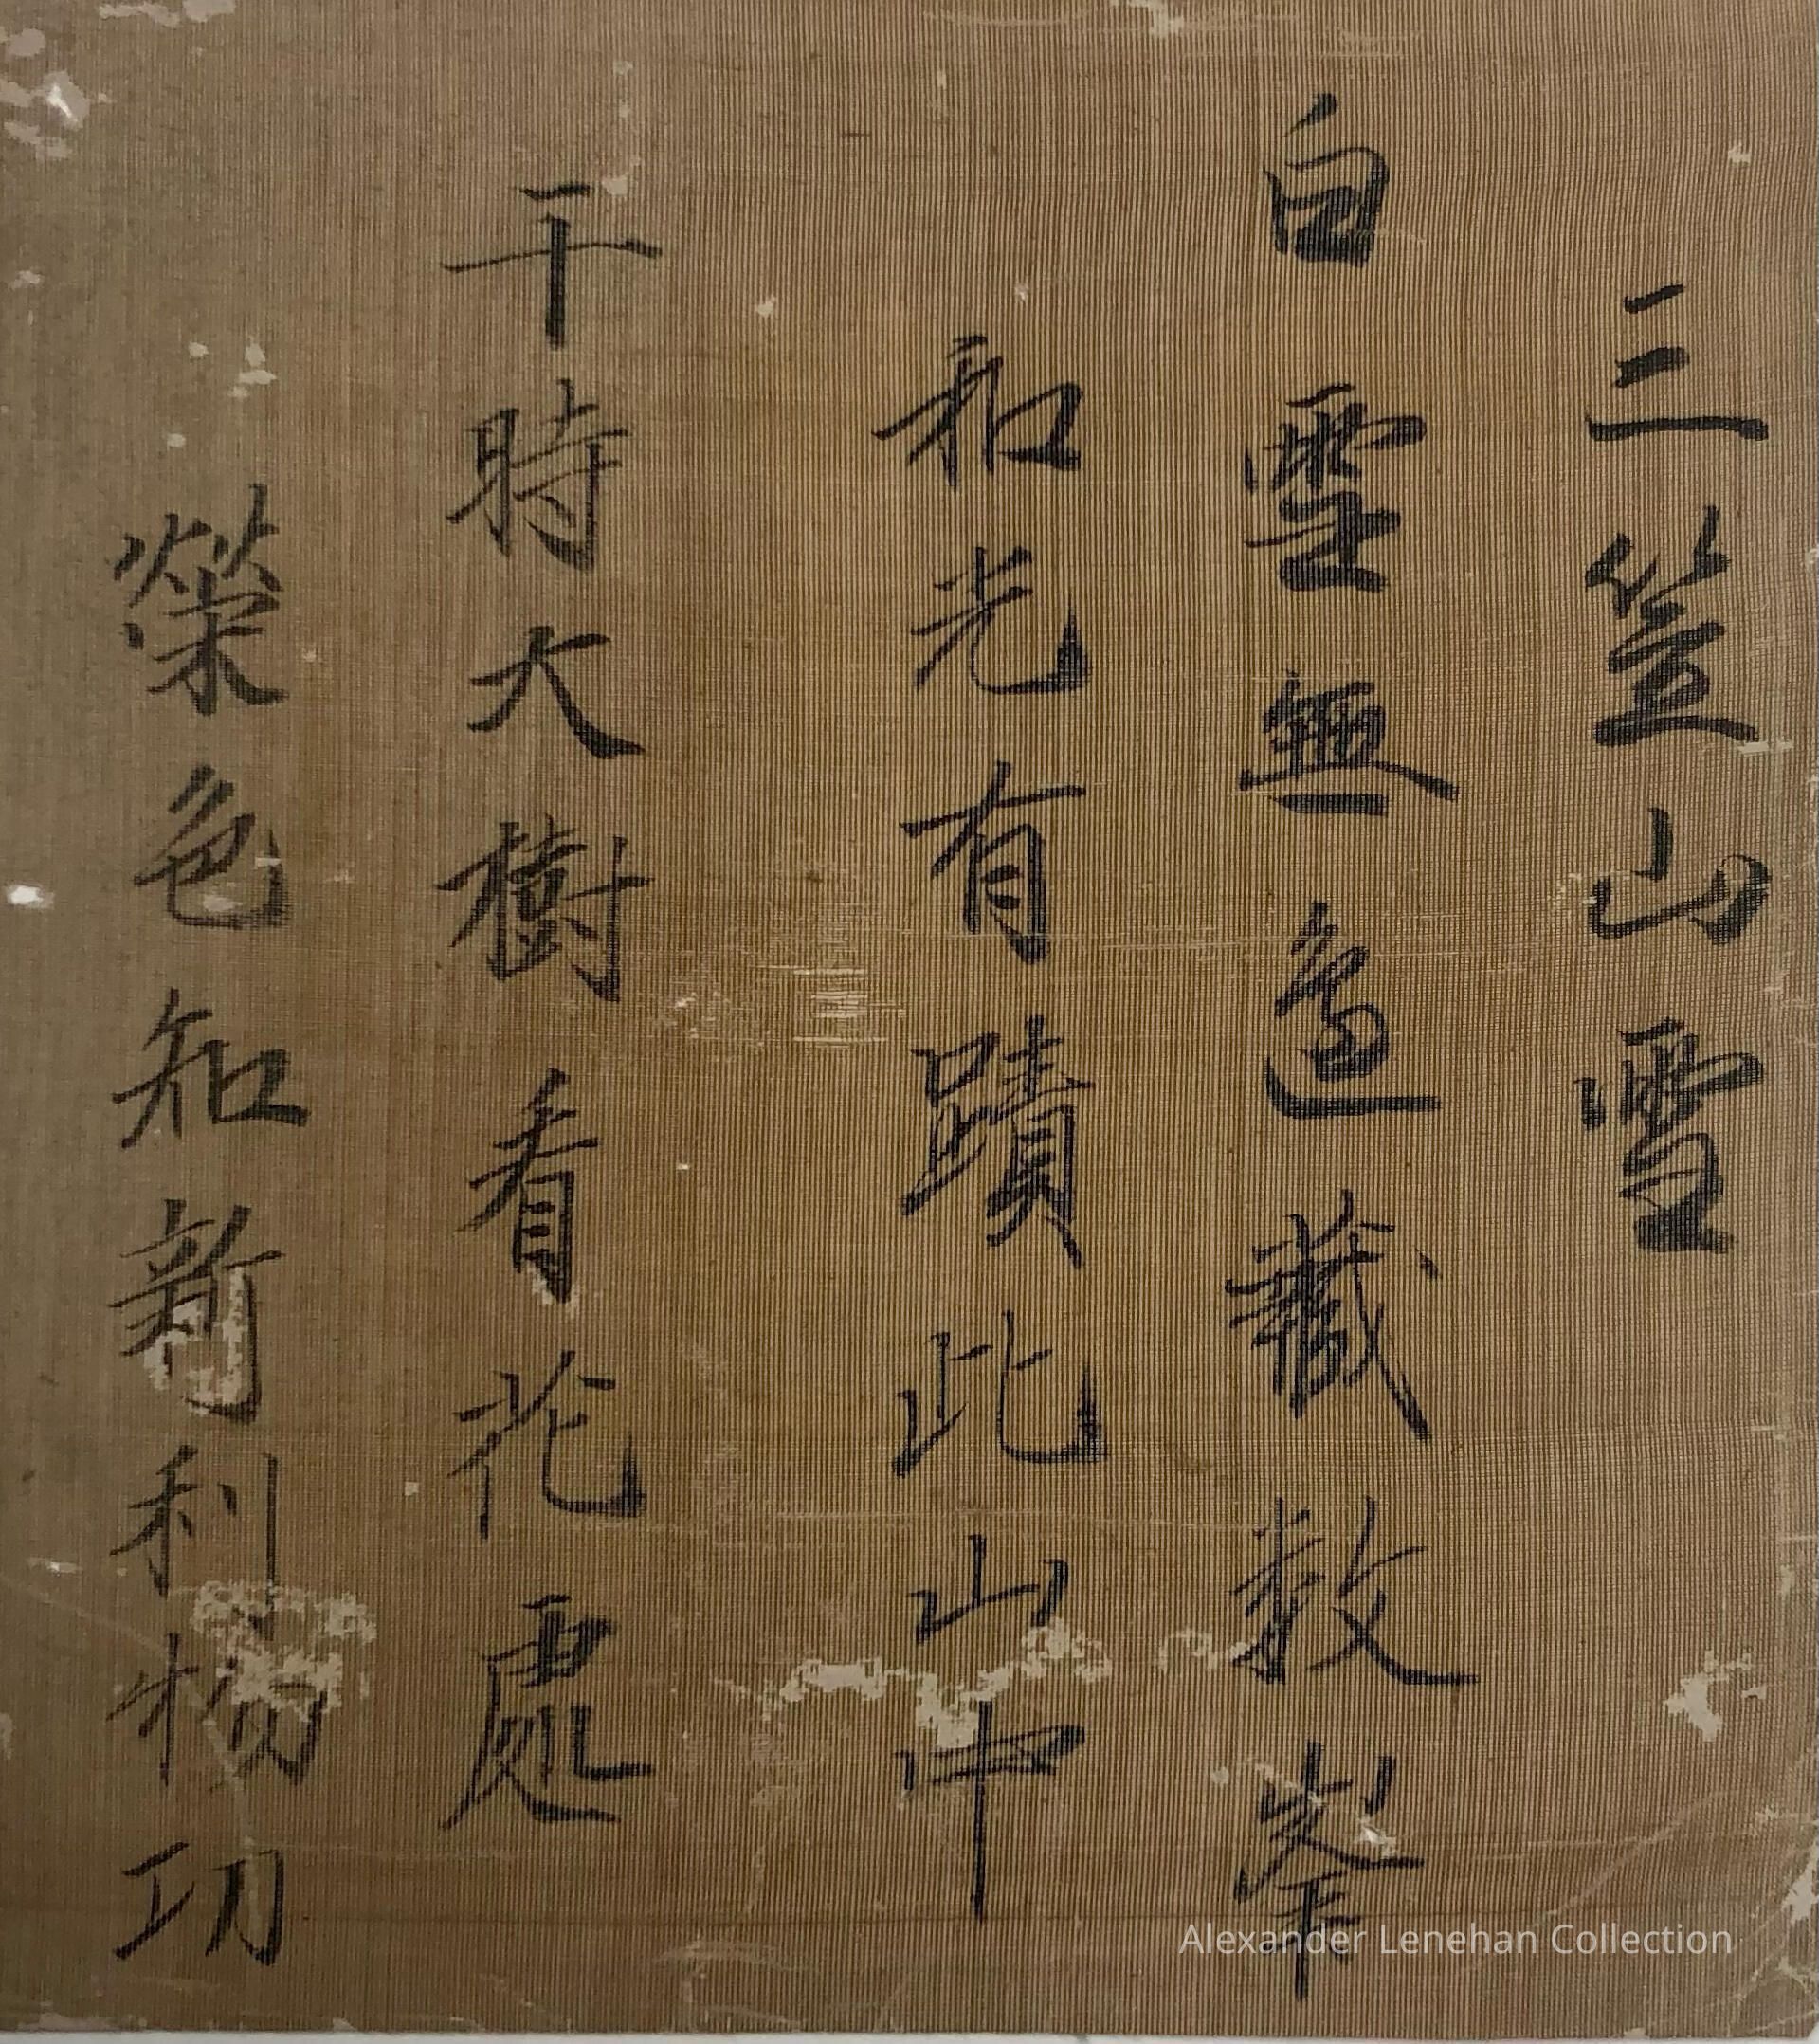 三笠山雪
白雪無邊巀数峯
和光有蹟此山中
干時大樹看花處
榮色知新利物功
Alexander Lenehan Collection